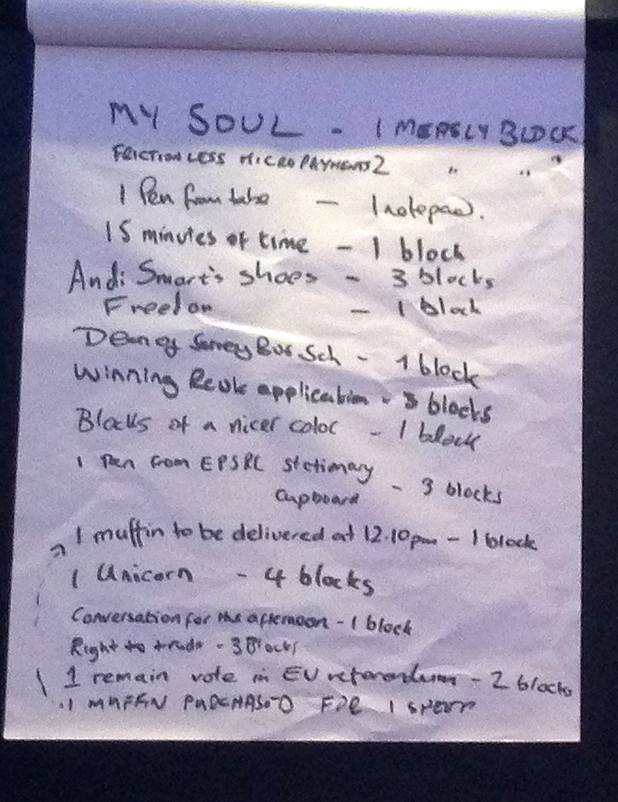 MY SOUL - 1 MERELY BLOCK
FRICTIONLESS MICROPAYMENTS 2 " " "
1 Pen from - 1 notepad.
15 minutes of time - 1 block
Andi Smart's shoes - 3 blocks
Freedom - 1 block
Dean of Surrey Bus. Sch - 1 block
Winning application - 3 blocks
Blocks of a nicer color - 1 block
1 Pen from EPSRC stationary
Cupboard - 3 blocks
1 muffin to be delivered at 12.10pm - 1 block
1 Unicorn - 4 blocks
Conversation for the afternoon - 1 block
Right to trade - 3 Blocks
1 remain vote in EU referendum - 2 blocks
1 MUFFIN PURCHASED FOR 1